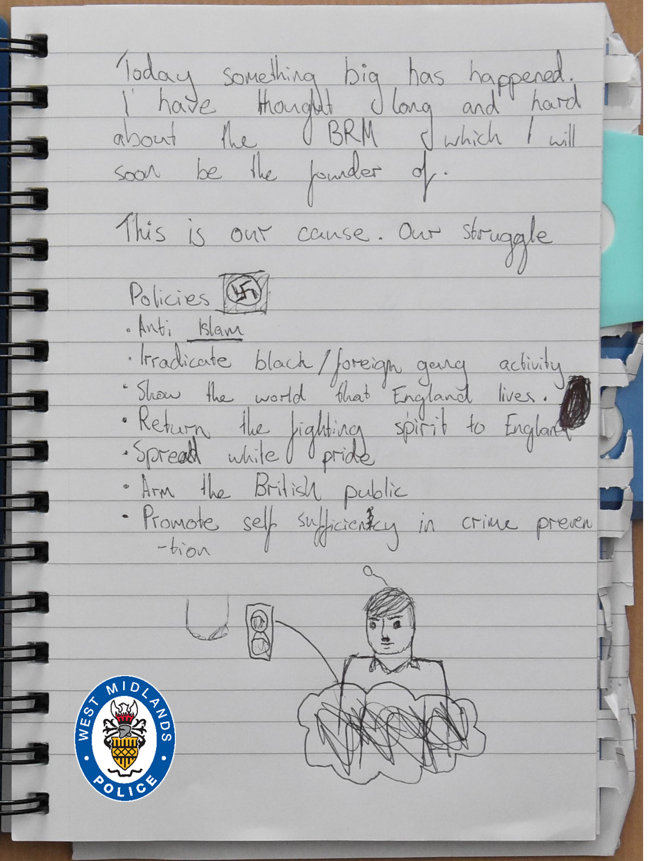 Today something big has happened.
I have thought long and hard
about the BRM which I will
soon be the founder of.
This is our cause. Our struggle
Policies
• Anti Islam
• Irradicate black/foreign gang activity
• Show the world that England lives.
• Return the fighting spirit to England
• Spread white pride
• Arm the British public
• Promote self sufficiency in crime preven
-tion
WEST MIDLANDS
POLICE